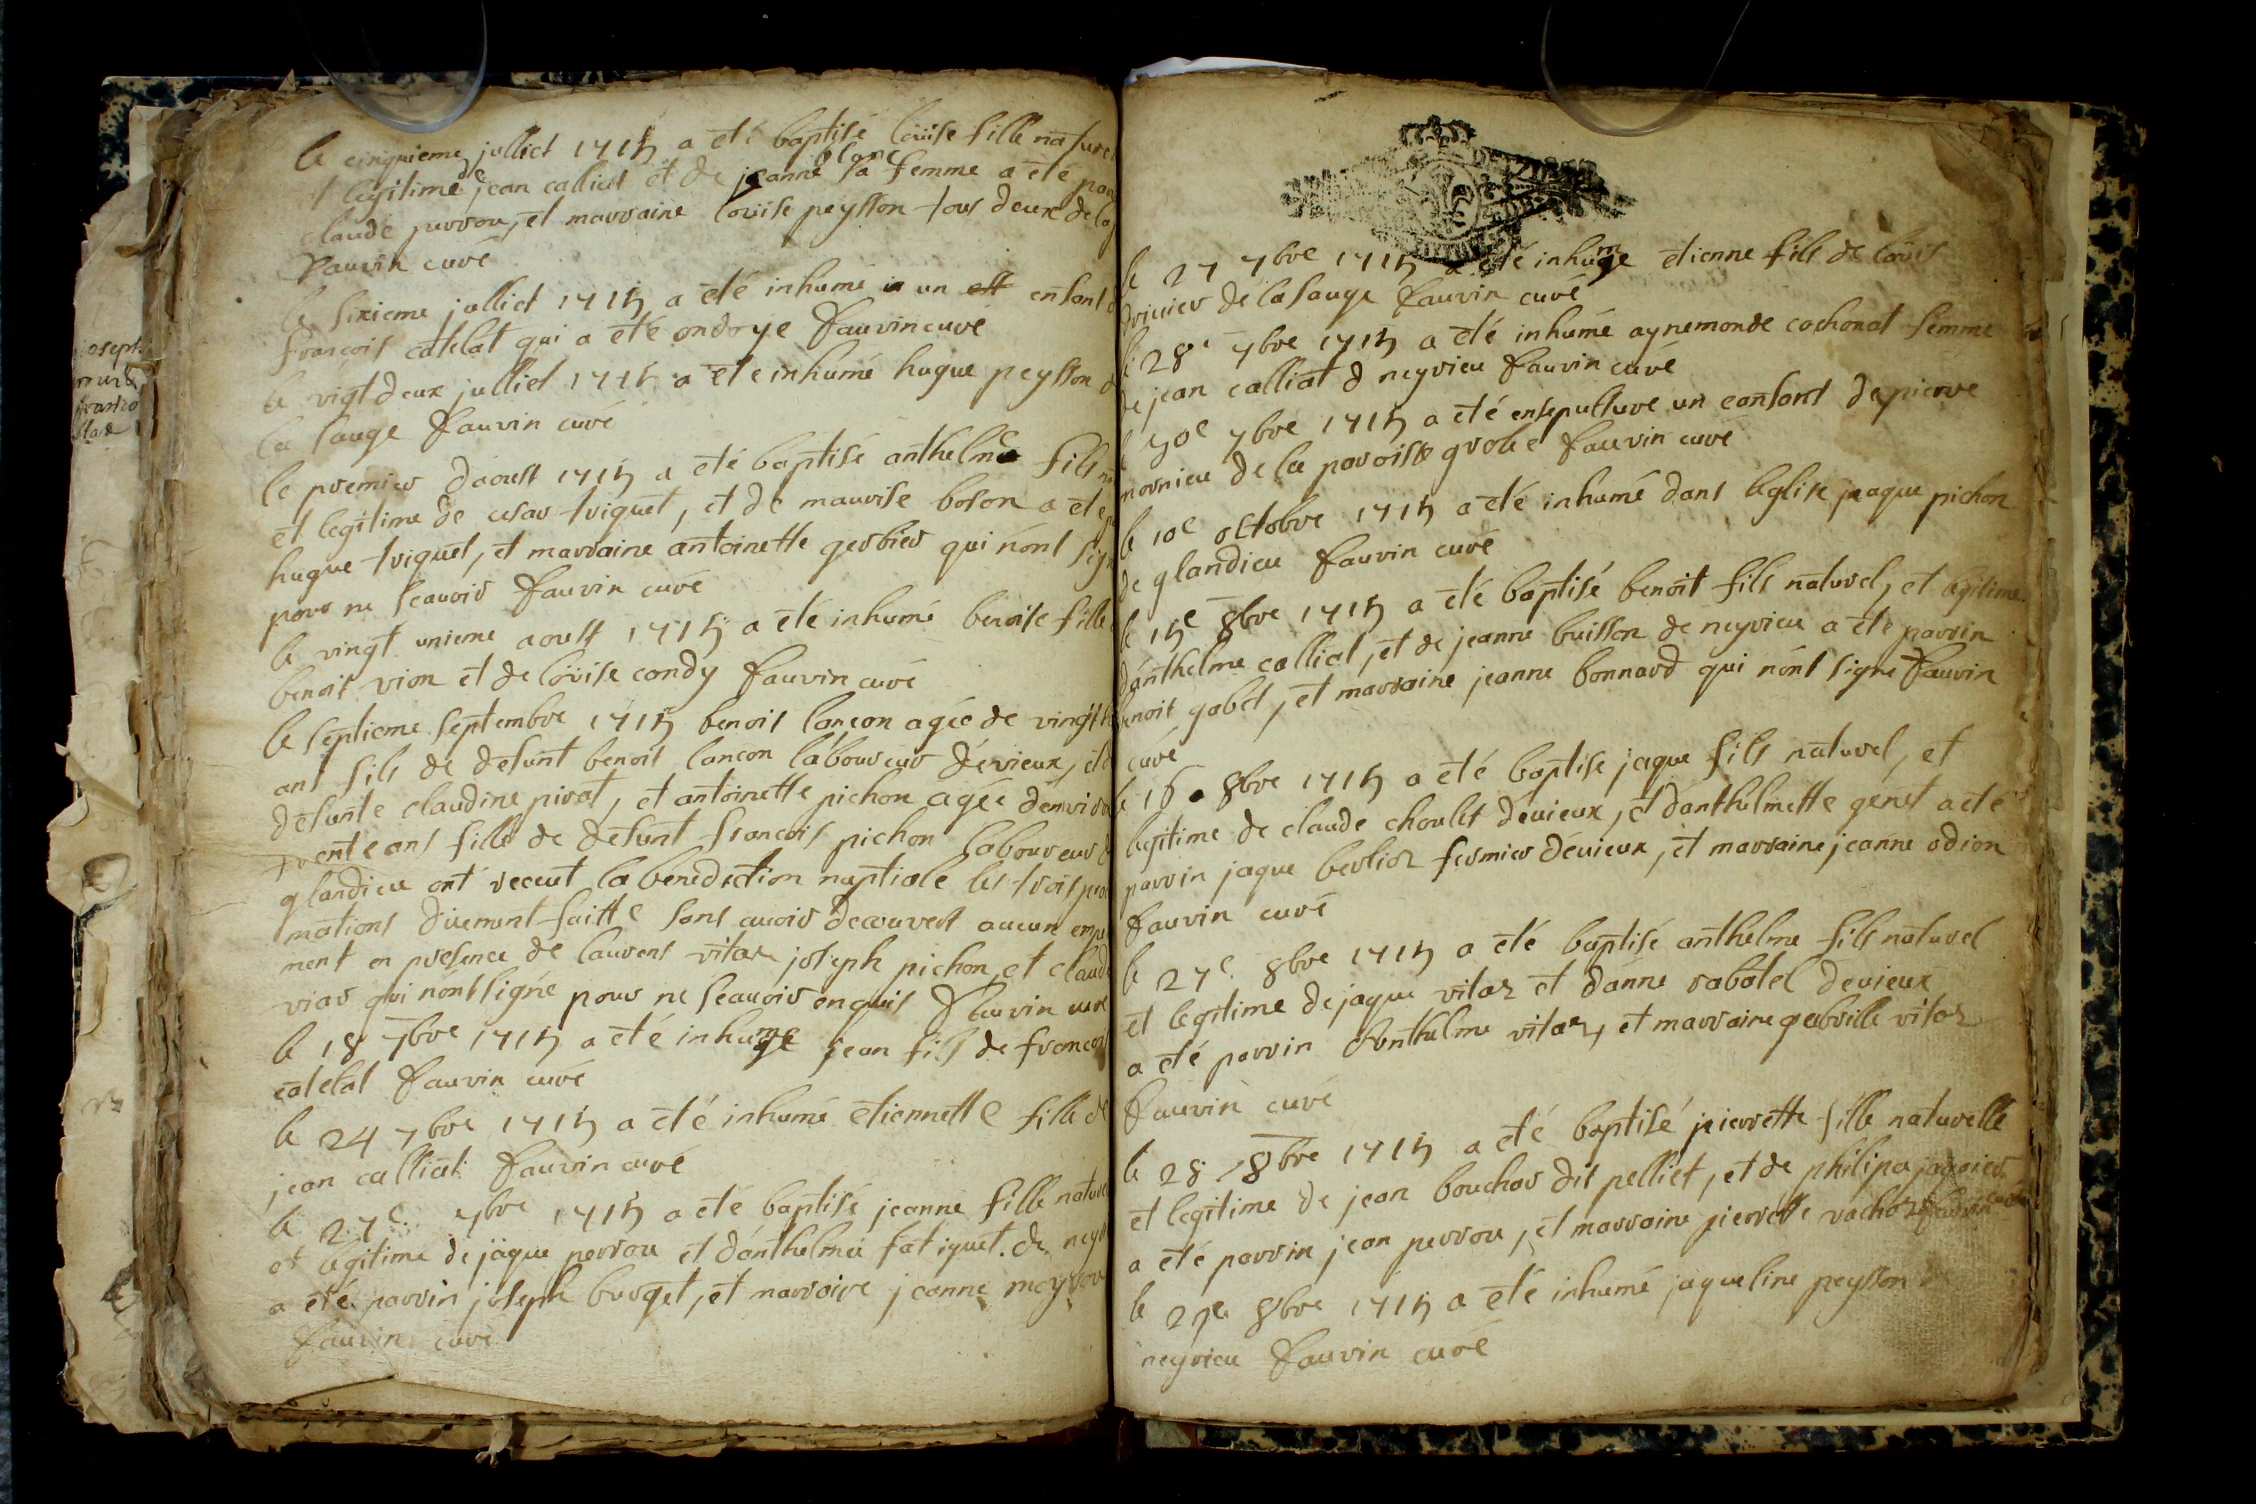 le cinquieme julliet 1715 a eté baptisé loüise fille nature
et legitime de jean calliat et de jeanne blanc sa femme a eté par
claude perrou, et marraine loüise peysson tous deux de la
fauvin curé
le sixieme julliet 1715 a eté inhumé un enfant d
francois catelat qui a eté ondoye fauvin cure
le vigt deux julliet 1715 a eté inhumé hugue peysson d
la sauge fauvin curé
le premier daoust 1715 a eté baptisé anthelme fils n
et legitime de cesar triquet, et de maurise boson a eté
hugue triquet, et marraine antoinette gerbier qui nónt sign
pour ne scavoir fauvin curé
le vingt unieme aoust 1715 a eté inhumé benoise fille
benoit vion et de loüise condy fauvin curé
le septieme septembre 1715 benoit lancon agée de vingt
ans fils de defunt benoit lancon laboureur dévieux, et d
defunte claudine pirot, et antoinette pichon agée denviro
trente ans fille de defunt francois pichon laboureur d
glandieu ont receut la benediction nuptiale les trois pro
mations düement faitte sans avoir decouvert aucun empe
ment en presence de laurens vitoz joseph pichon, et claude
viar qui nónt signé pour ne scavoir enquis fauvin curé
le 18 7bre 1715 a eté inhumé jean fils de francois
catelat fauvin curé
le 24 7bre 1715 a eté inhumé etiennette fille de
jean calliat fauvin curé
le 27e 7bre 1715 a eté baptisé jeanne fille nature
et légitime de jaque perrou et dánthelmie fatiguet de neyr
a eté parrin joseph burget, et marraine jeanne meyrou
fauvin curé
le 27 7bre 1715 a eté inhumé etienne fils de loüis
de la sauge fauvin curé
le 28e 7bre 1715 a eté inhumé aynemonde cochonat femme
de jean calliat d neyrieu fauvin curé
le 30e 7bre 1715 a eté ensepulturé un eanfant de pierre
mornieu de la paroisse groleé fauvin curé
le 10e octobre 1715 a eté inhumé dans leglise jeaque pichon
de glandieu fauvin curé
le 15e 8bre 1715 a eté baptisé benoit fils naturel, et legitime
dánthelme calliat, et de jeanne buisson de neyrieu a eté parrin
benoit gabet, et marraine jeanne bonnard qui nónt signe fauvin
curé
le 16 8bre 1715 a eté baptise jaque fils naturel, et
legitime de claude choulet dévieux, et dánthelmette genet a eté
parrin jaque berlioz fermier dévieux, et marraine jeanne odion
fauvin curé
le 27e 8bre 1715 a eté baptisé anthelme fils naturel
et legitime de jaque vitoz et dánne rabatel dévieux
a eté parrin Anthelme vitoz, et marraine gabrille vitoz
fauvin curé
le 28 8bre 1715 a eté baptisé pierrette fille naturelle
et legitime de jean bouchar dit pelliet, et de philipa
a eté parrin jean perrou, et marraine pierrette vachoz fauvin curé
le 29e 8bre 1715 a eté inhumé jaqueline peysson
neyrieu fauvin curé